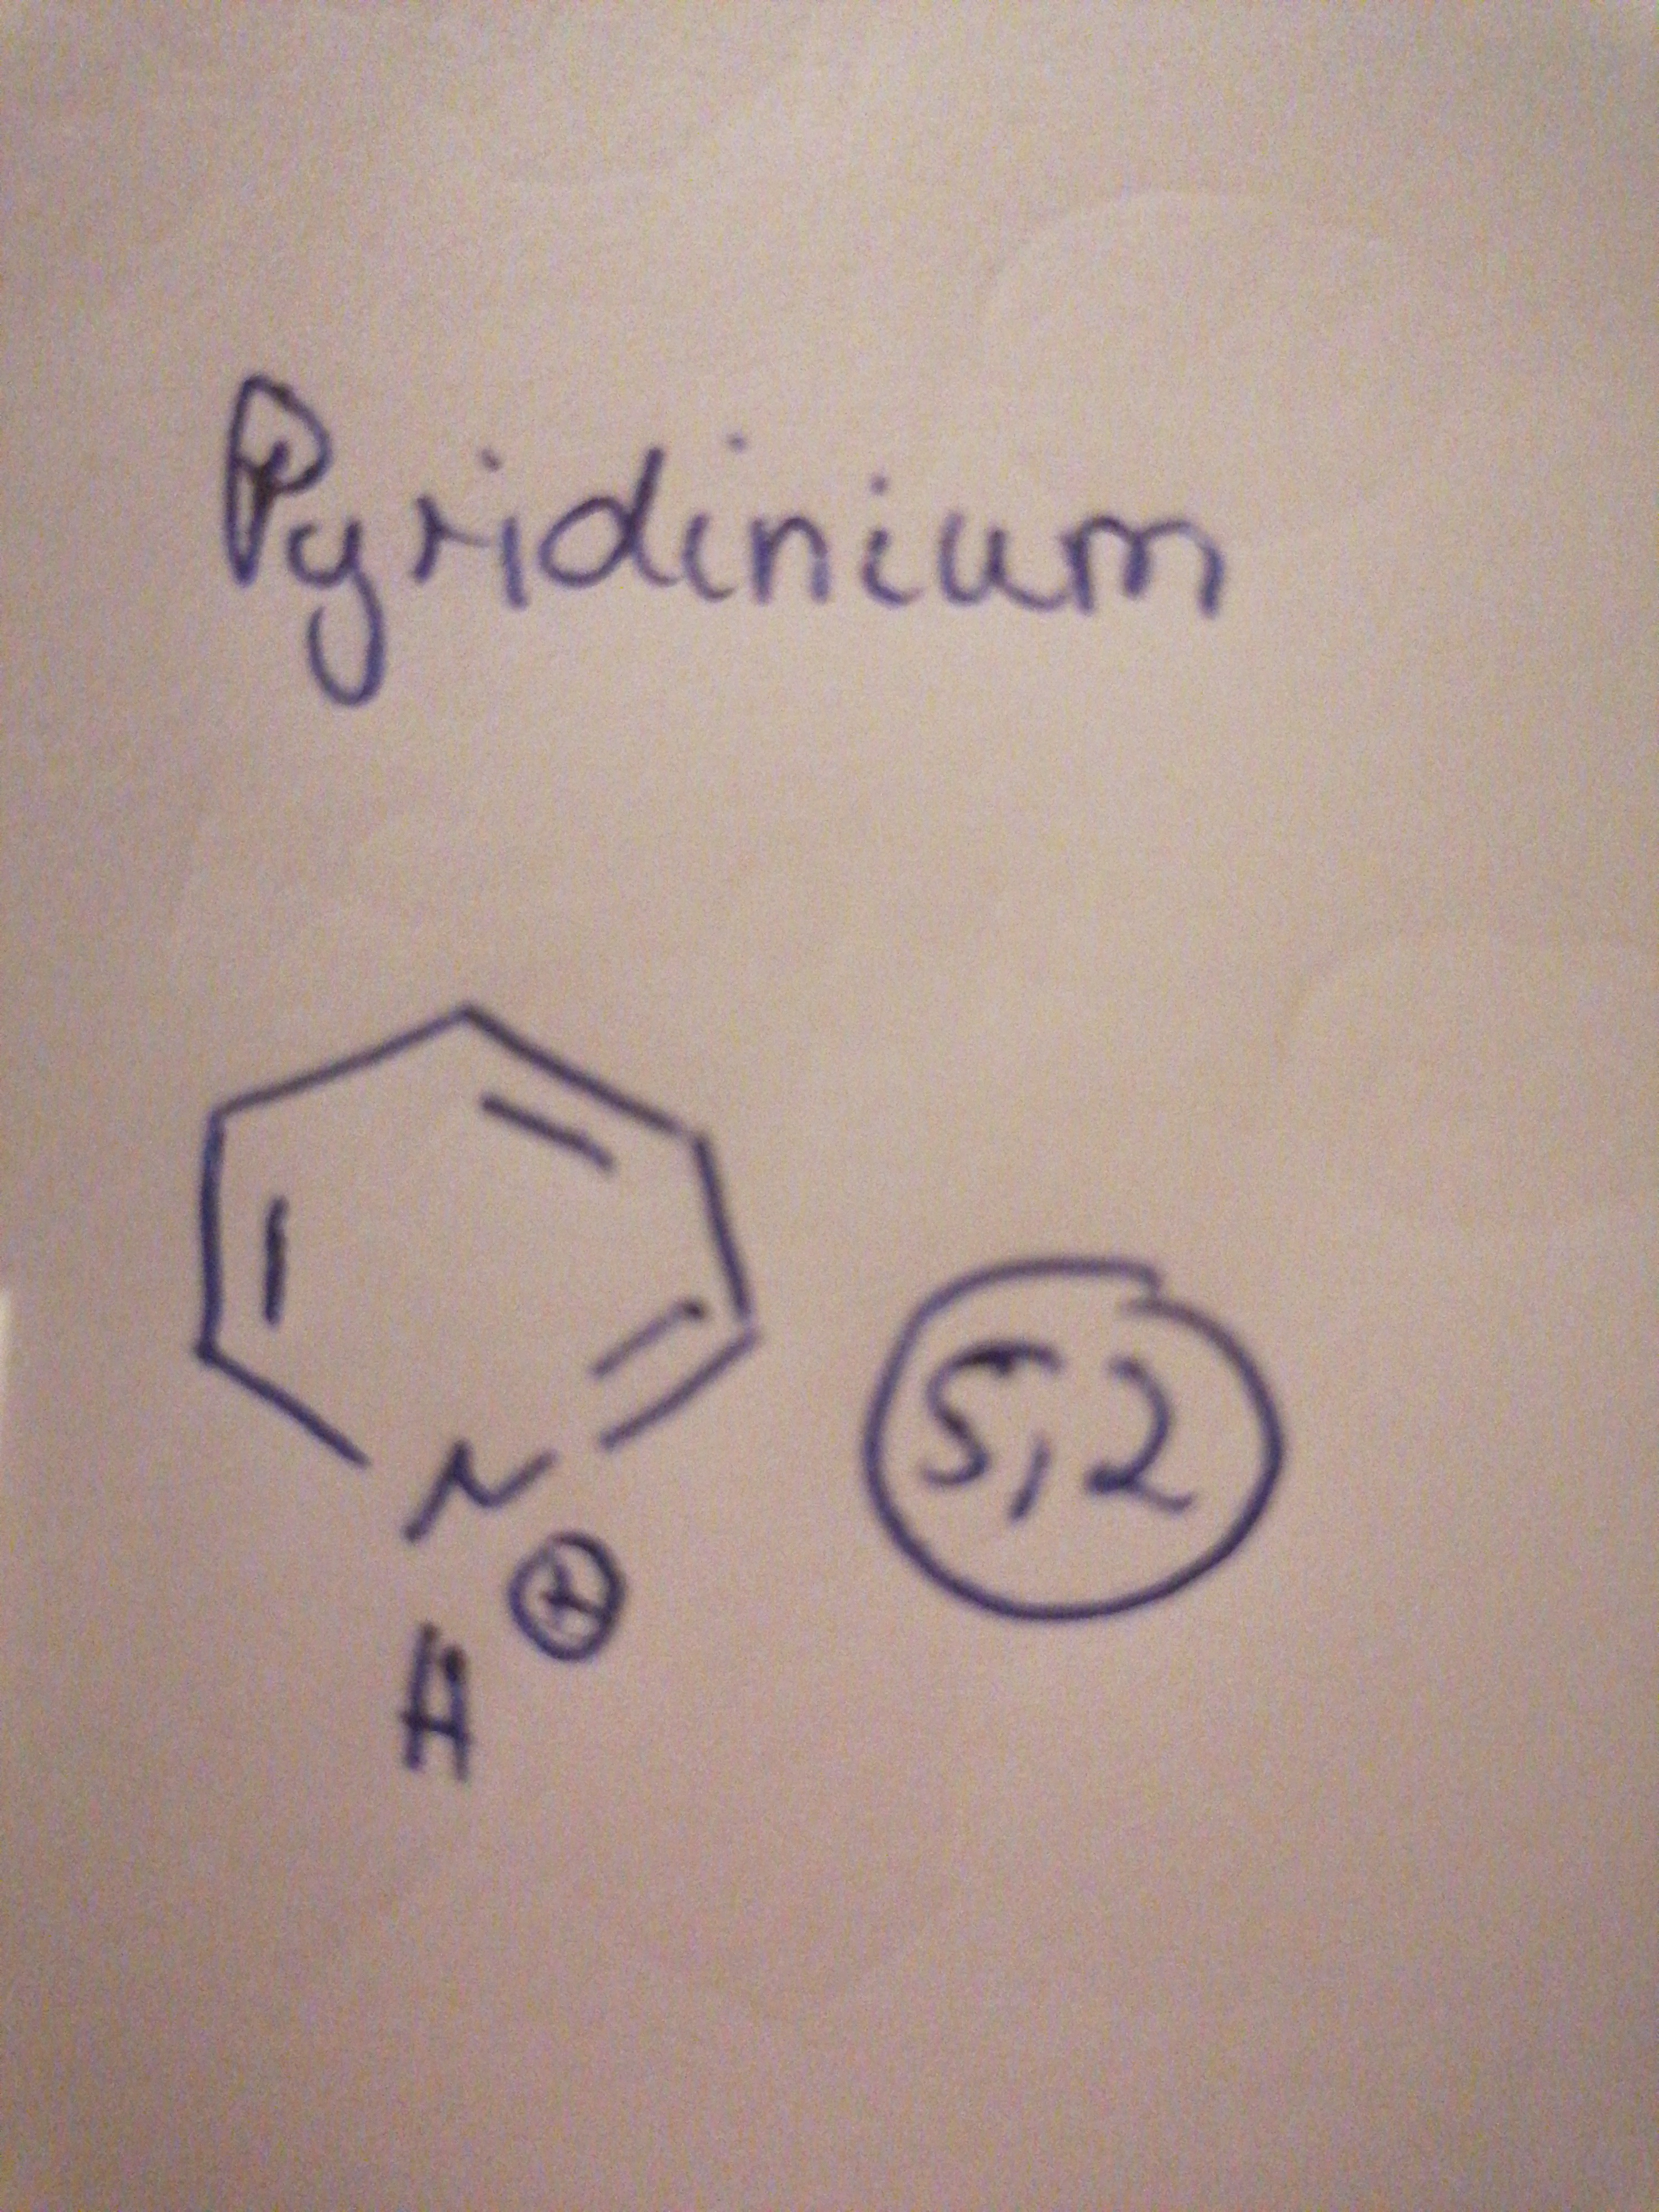 Pyridinium
N
⊕
H
5,2